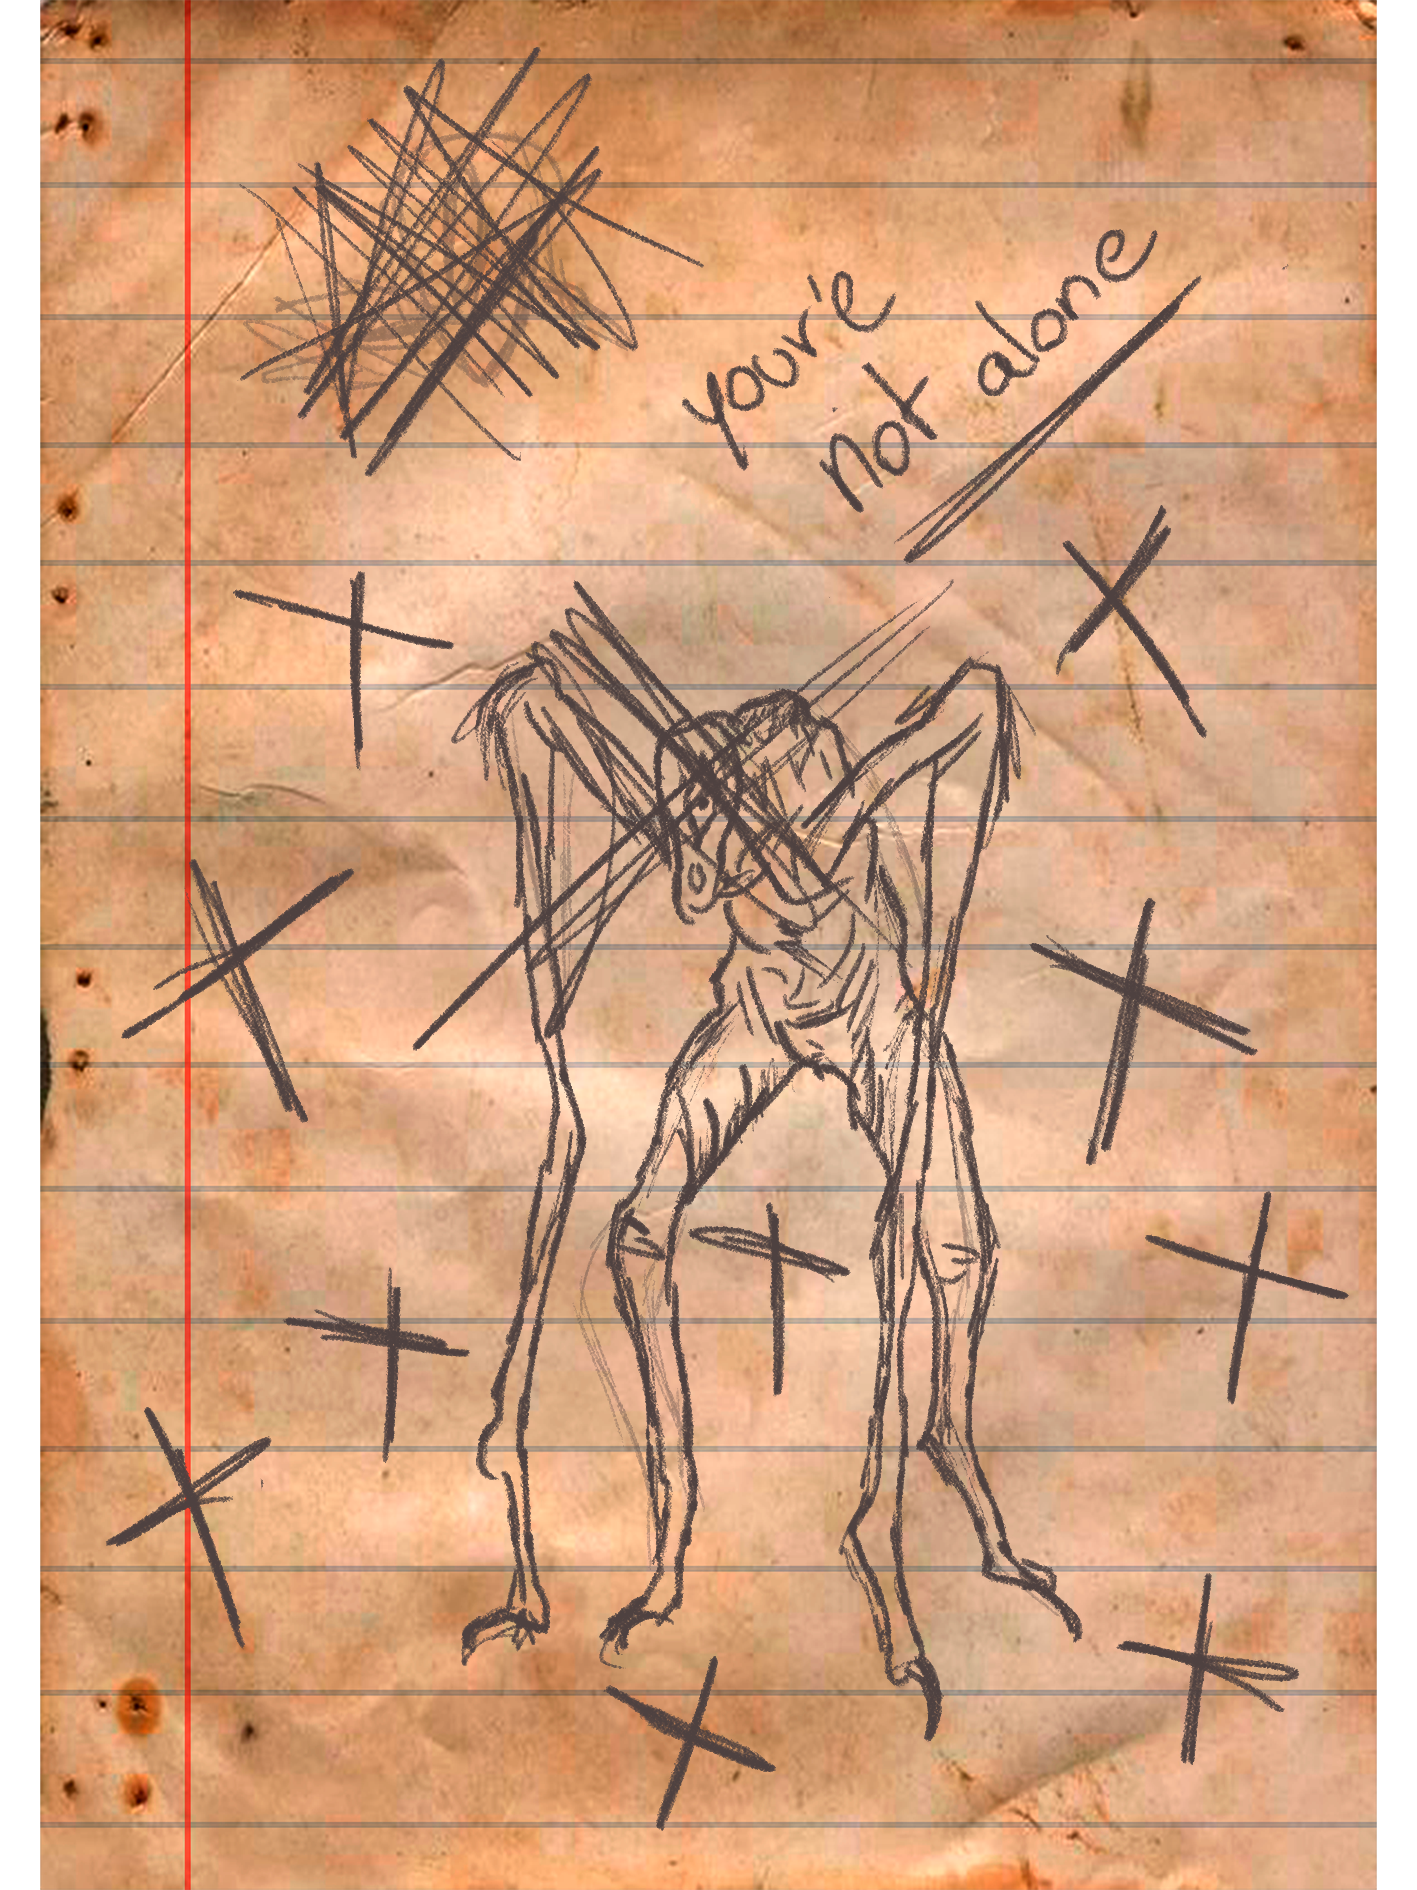 your'e
not alone